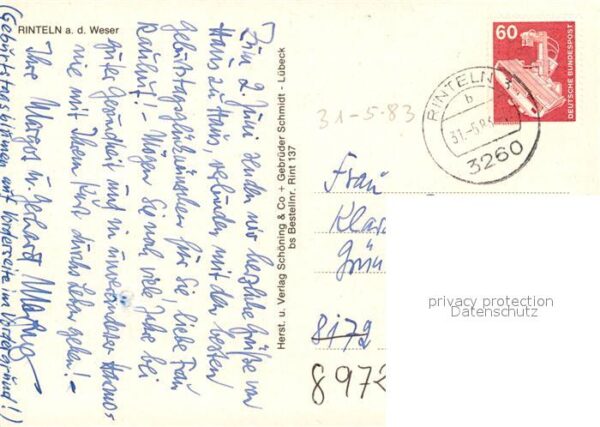 RINTELN a. d. Weser
Zum 2. Juni senden wir herzliche Grüße von
Haus zu Haus, verbunden mit den besten
Geburtstagsglückwünschen für Sie, liebe Frau
! - Mögen Sie noch viele Jahre bei
guter Gesundheit und in unveränderter
wie mit Ihrem durchs Leben gehen! -
Ihre Margot u. Gerhard
(Geburtstagsblumen auf Vorderseite im Vordergrund!)
Herst. u. Verlag Schöning & Co + Gebrüder Schmidt - Lübeck
bs Bestellnr. Rint 137
60
DEUTSCHE BUNDESPOST
RINTELN 3
b
31.-5.83
3260
31-5-83
Frau
Klara
Grün
8172
8972
privacy protection
Datenschutz